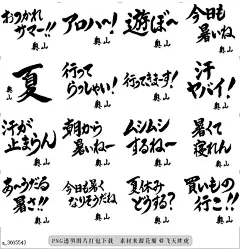 おつかれ
サマー!!
奥山
アロハ〜!
奥山
遊ぼ〜
奥山
今日も
暑いね
奥山
夏
奥山
行って
らっしゃい!
奥山
行ってきまーす!
奥山
汗
ヤバイ!
奥山
汗が
止まらん
奥山
朝から
暑いねー
奥山
ムシムシ
するね〜
奥山
暑くて
寝れん
奥山
あ〜うだる
暑さ!!
奥山
今日も暑く
なりそうだね
奥山
夏休み
どうする?
奥山
買いもの
行こ!!
奥山
PNG透明图片打包下载 素材来源花瓣@飞天胖虎